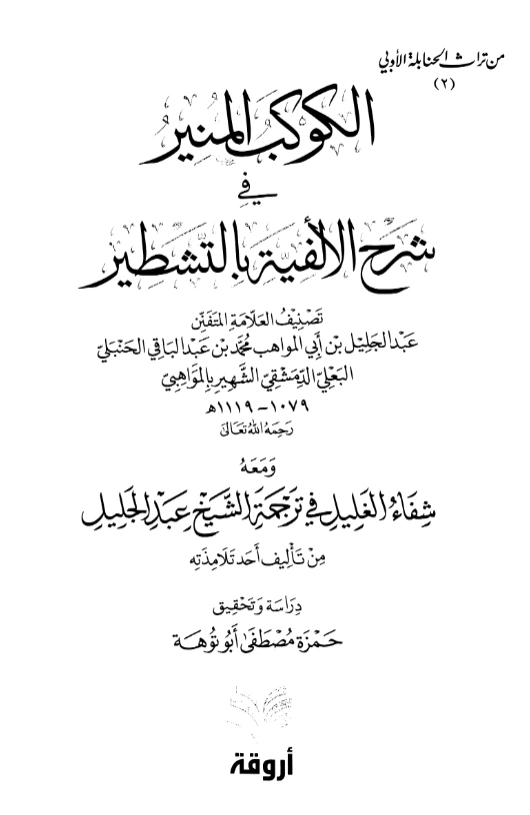 من تراث الحنابلة الأدبي
(٢)
الكوكب المنير
في
شرح الألفية بالتشطير
تصنيف العلامة المتفنن
عبد الجليل بن أبي المواهب محمد بن عبد الباقي الحنبلي
البعلي الدمشقي الشهير بالمواهبي
١٠٧٩ - ١١١٩هـ
رحمه الله تعالى
ومعه
شفاء الغليل في ترجمة الشيخ عبد الجليل
من تأليف أحد تلامذته
دراسة وتحقيق
حمزة مصطفى أبو توهة
أروقة